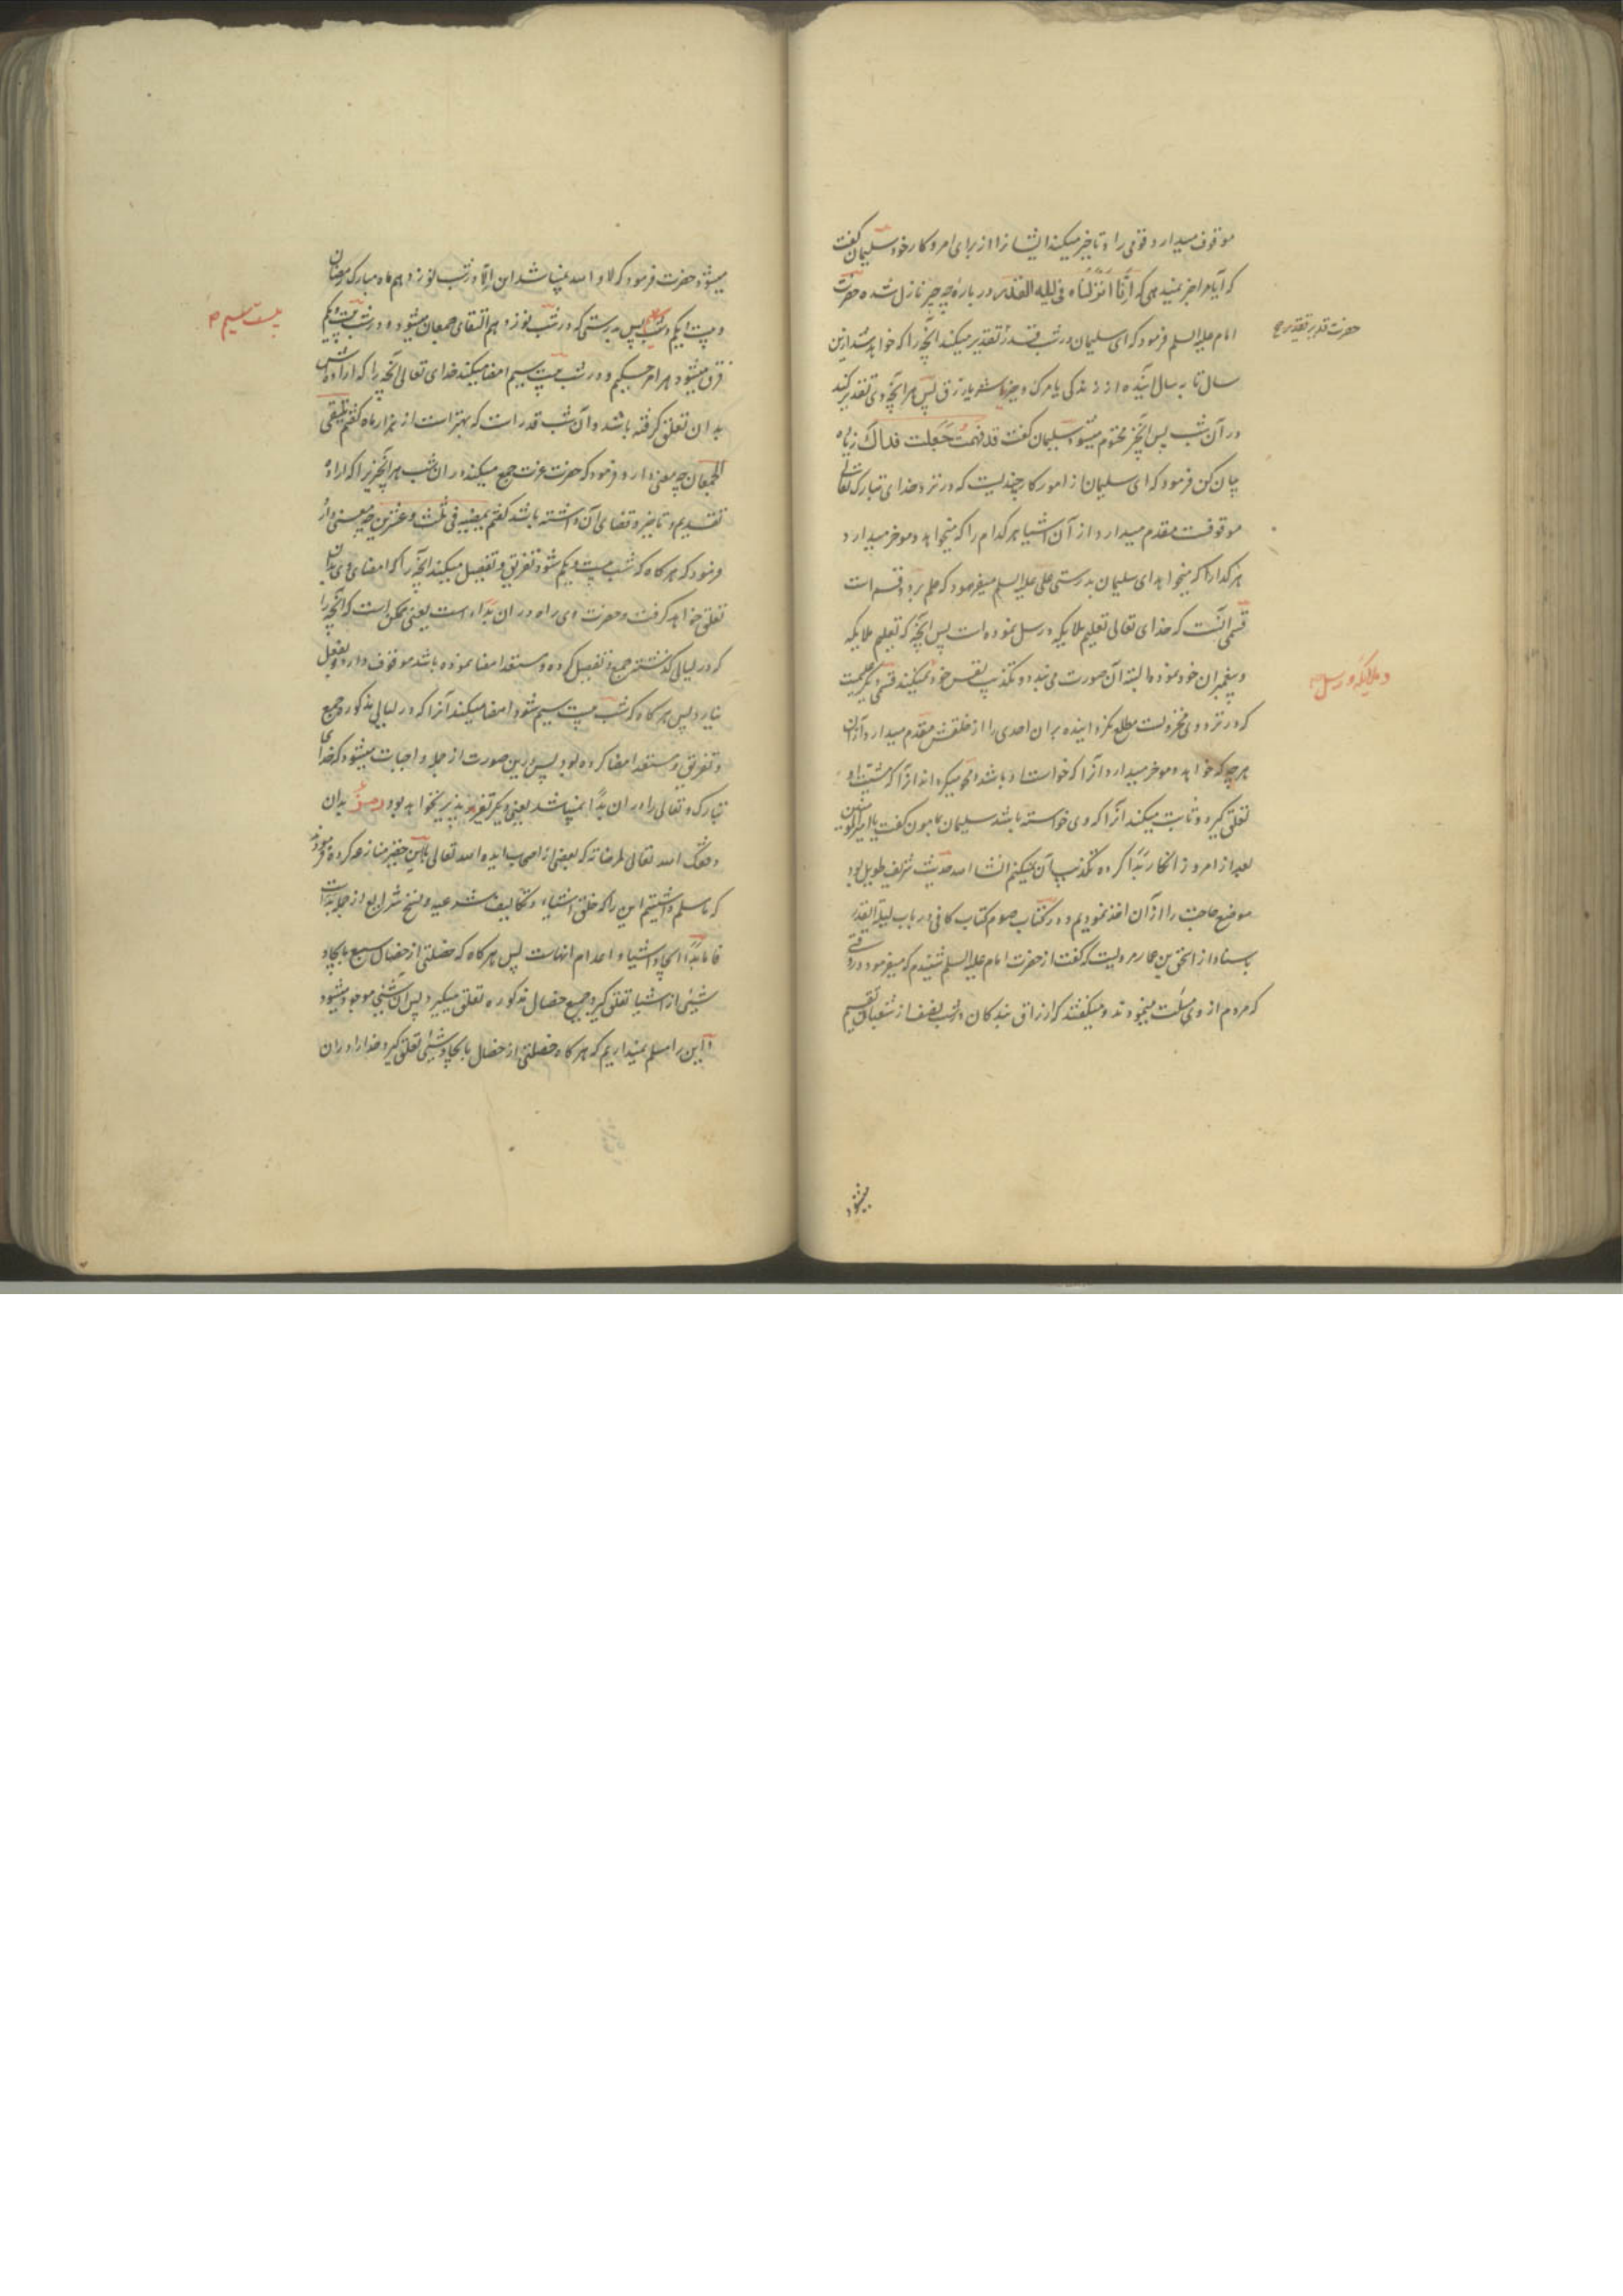 موقوف میدارد قومی را و تاخیر میکند ایشانرا از برای امر و کار خود سلیمان گفت
که آیا مرا خبر نمیدهی که انا انزلناه فی لیله القدر در باره چه چیز نازل شده حضرت
امام علیه السلم فرمود که ای سلیمان در شب قدر تقدیر میکند آنچه را که خواهد شد از این
حضرت قدیر تقدیر
سال تا به سال آینده از زندگی یا مرگ و خیر یا شر یا رزق پس هر آنچه وی تقدیر کند
در آن شب پس آنچیز محتوم میشود سلیمان گفت قد فهمت جعلت فداک زیاده
بیان کن فرمود که ای سلیمان از امور کار چندیست که در نزد خدای تبارک و تعالی
موقوفست مقدم میدارد از آن اشیا هر کدام را که میخواهد و موخر میدارد
هر کدام را که میخواهد ای سلیمان بدرستی علی علیه السلم میفرمود که علم بر دو قسم است
قسمی آنست که خدای تعالی تعلیم ملایکه و رسل نموده است پس آنچه که تعلیم ملایکه
و پیغمبران خود نموده البته آن صورت می بندد و تکذیب نفس خود نمیکند قسمی دیگر علمیست
و ملایکه و رسل
که در نزد وی مخزونست مطلع نگردانیده بر ان احدی را از خلقش مقدم میدارد از آن
هر چه که خواهد و موخر میدارد آنرا که خواسته باشد و محو میگرداند آنرا که مشیت او
تعلق گیرد و ثابت میکند آنرا که وی خواسته باشد سلیمان بمامون گفت یا امیر المومنین
بعد از امروز انکار بدا کرده تکذیب آن نمیکنم انشا الله حدیث شریف طویل بود
موضع حاجت را از آن اخذ نمودیم و در کتاب صوم کتاب کافی در باب لیلة القدر
باسناد از اسحق بن عمار مرویست که گفت از حضرت امام علیه السلم شنیدم که میفرمود در وقتی
که مردم از وی مسئلت مینمودند و میگفتند که ارزاق بندگان در شب نصف از شعبان تقسیم
میشود
میشود حضرت فرمود که لا و الله نمیباشد این الا در شب نوزدهم ماه مبارک رمضان
و بیست و یکم و شب پس بدرستی که در شب نوزدهم التقای جمعان میشود و در شب بیست و یکم
بیست سیم
فرق میشود هر امر حکیم و در شب بیست سیم امضا میکند خدای تعالی آنچه را که اراده اش
بدان تعلق گرفته باشد و آن شب قدر است که بهتر است از هزار ماه گفتم یلتقی
الجمعان چه معنی دارد فرمود که حضرت عزت جمع میکند در ان شب هر آنچیزی را که اراده
تقدیم و تاخیر و قضای آن داشته باشد گفتم یمضیه فی ثلث و عشرین چه معنی دارد
فرمود که هر گاه که شب بیست و یکم شود تفریق و تفصیل میکند آنچه را که امضای وی بدان
تعلق خواهد گرفت و حضرت وی راه در ان بداء است یعنی ممکن است که آنچه را
که در لیالی گذشته جمع و تفصیل کرده و مستعد امضا نموده باشد موقوف دارد و بفعل
نیارد پس هر گاه که شب بیست سیم شود امضا میکند آنرا که در لیالی مذکوره جمع
و تفریق و مستعد امضا کرده بود پس درین صورت از جمله واجبات میشود که خدای
تبارک و تعالی را در ان بدا نمیباشد یعنی دیگر تغیر پذیر نخواهد بود رمز بدان
وفقک الله تعالی لمرضاته که بعضی از اصحاب ایده الله تعالی باین حقیر منازعه کرده فرمودند
که ما مسلم داشتیم این را که خلق اشیاء و تکالیف شرعیه و نسخ شرایع از جمله بداست
فاما بدا ایجاد اشیا و اعدام انهاست پس هر گاه که خصلتی از خصال سبع بایجاد
شیئی از اشیا تعلق گیرد جمیع خصال مذکوره تعلق میگیرد پس آن شیئی موجود میشود
و این را مسلم نمیداریم که هر گاه خصلتی از خصال بایجاد شیئی تعلق گیرد خدا را در ان